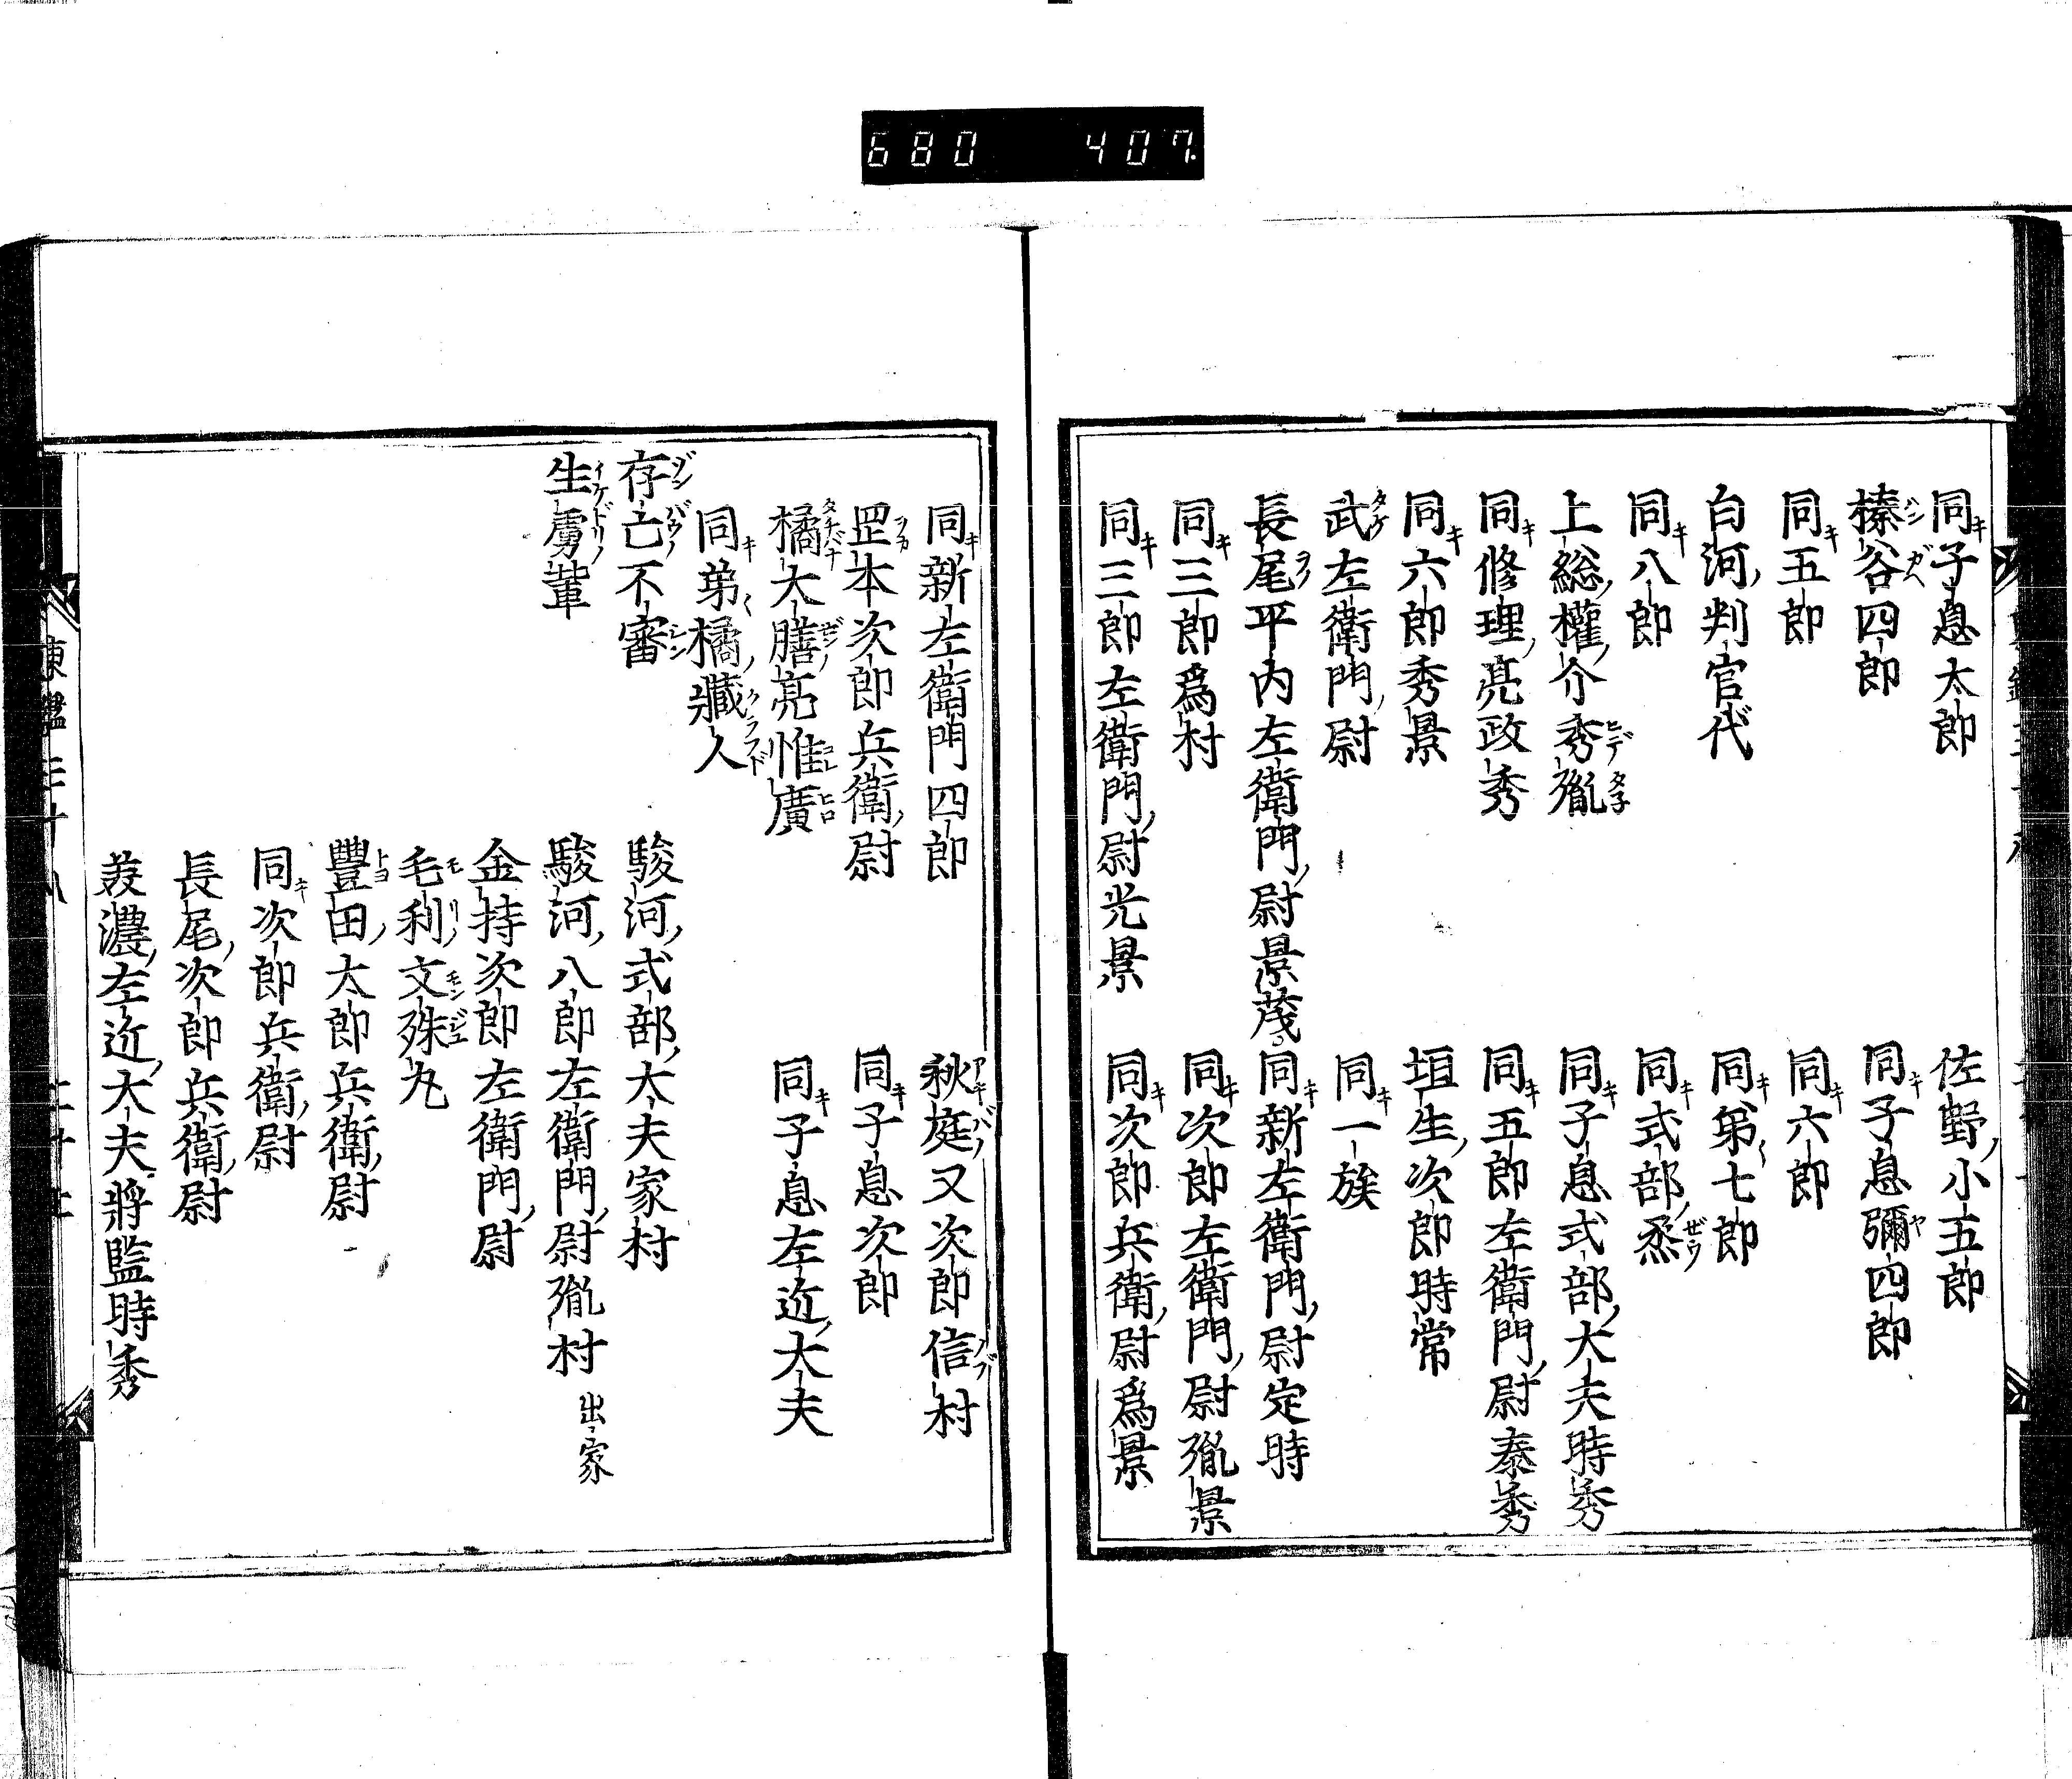 680 407.
同子息太郎 佐野小五郎
榛谷四郎 同子息彌四郎
同五郎 同六郎
白河判官代 同弟七郎
同八郎 同式部烝
上総權介秀胤 同子息式部大夫時秀
同修理亮政秀 同五郎左衛門尉泰秀
同六郎秀景 垣生次郎時常
武左衛門尉 同一族
長尾平内左衛門尉景茂 同新左衛門尉定時
同三郎爲村 同次郎左衛門尉胤景
同三郎左衛門尉光景 同次郎兵衛尉爲景
同新左衛門四郎 秋庭又次郎信村
罡本次郎兵衛尉 同子息次郎
橘大膳亮惟廣 同子息左近大夫
同弟橘藏人
存亡不審 駿河式部大夫家村
生虜輩 駿河八郎左衛門尉胤村 出家
金持次郎左衛門尉
毛利文殊丸
豐田太郎兵衛尉
同次郎兵衛尉
長尾次郎兵衛尉
美濃左近大夫將監時秀